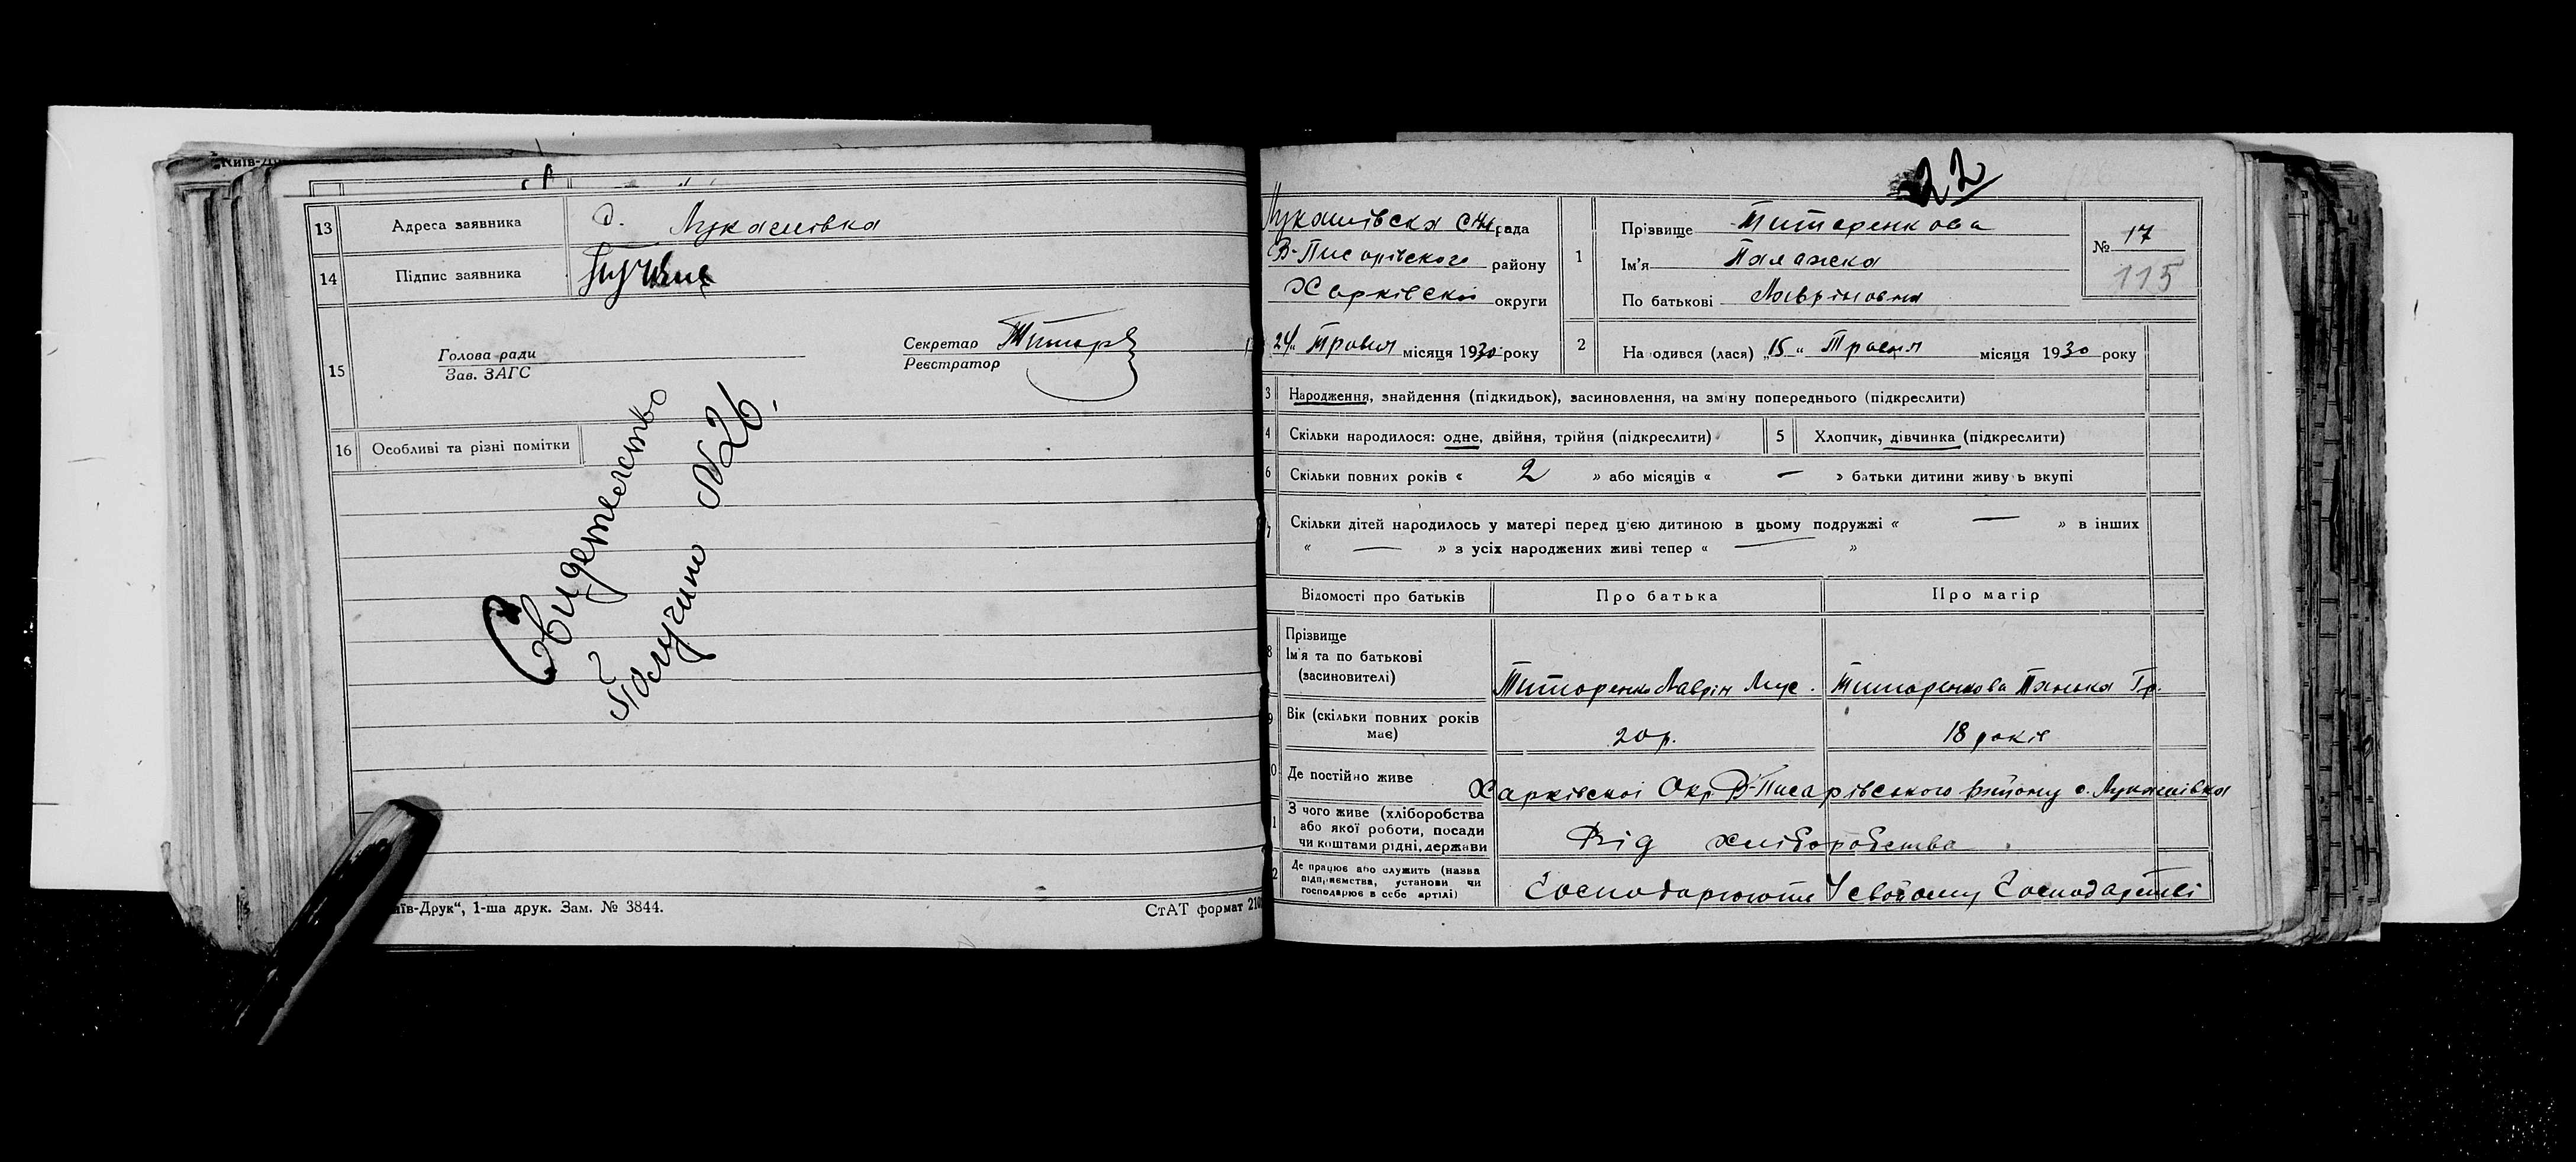 Київ-Др
13 Адреса заявника с. Лукашівка
14 Підпис заявника
15 Голова ради
Зав. ЗАГС
Секретар Титар
Реєстратор
16 Особливі та різні помітки
Свидетельство
Получино №26.
иїв-Друк“, 1-ша друк. Зам. № 3844.
СтАТ формат 210
22
Лукашівська сільрада
В-Писарівского району
Харківскоі округи
24 “ Травня місяця 1930 року
1 Прізвище Титаренкова
Ім'я Палажка
По батькові Лавріновна
№ 17
115
2 На одився (лася) „15 “ Травня місяця 1930 року
3 Народження, знайдення (підкидьок), засиновлення, на зміну попереднього (підкреслити)
4 Скільки народилося: одне, двійня, трійня (підкреслити)
5 Хлопчик, дівчинка (підкреслити)
6 Скільки повних років « 2 » або місяців « — » батьки дитини живу ь вкупі
7 Скільки дітей народилось у матері перед цією дитиною в цьому подружжі « — » в інших
« — » з усіх народжених живі тепер « — »
Відомості про батьків Про батька Про матір
8 Прізвище
Ім'я та по батькові
(засиновителі)
Титаренко Лаврін Мус. Титаренкова Панька Гр.
9 Вік (скільки повних років
має)
20 р. 18 років
0 Де постійно живе Харківскоі Окр. В-Писарівського Району с. Лукашівка
1 З чого живе (хліборобства
або якої роботи, посади
чи коштами рідні, держави
Від хліборобства
2 Де працює або служить (назва
підприємства, установи чи
господарює в себе артілі)
Господарюють У свойому Господарстві